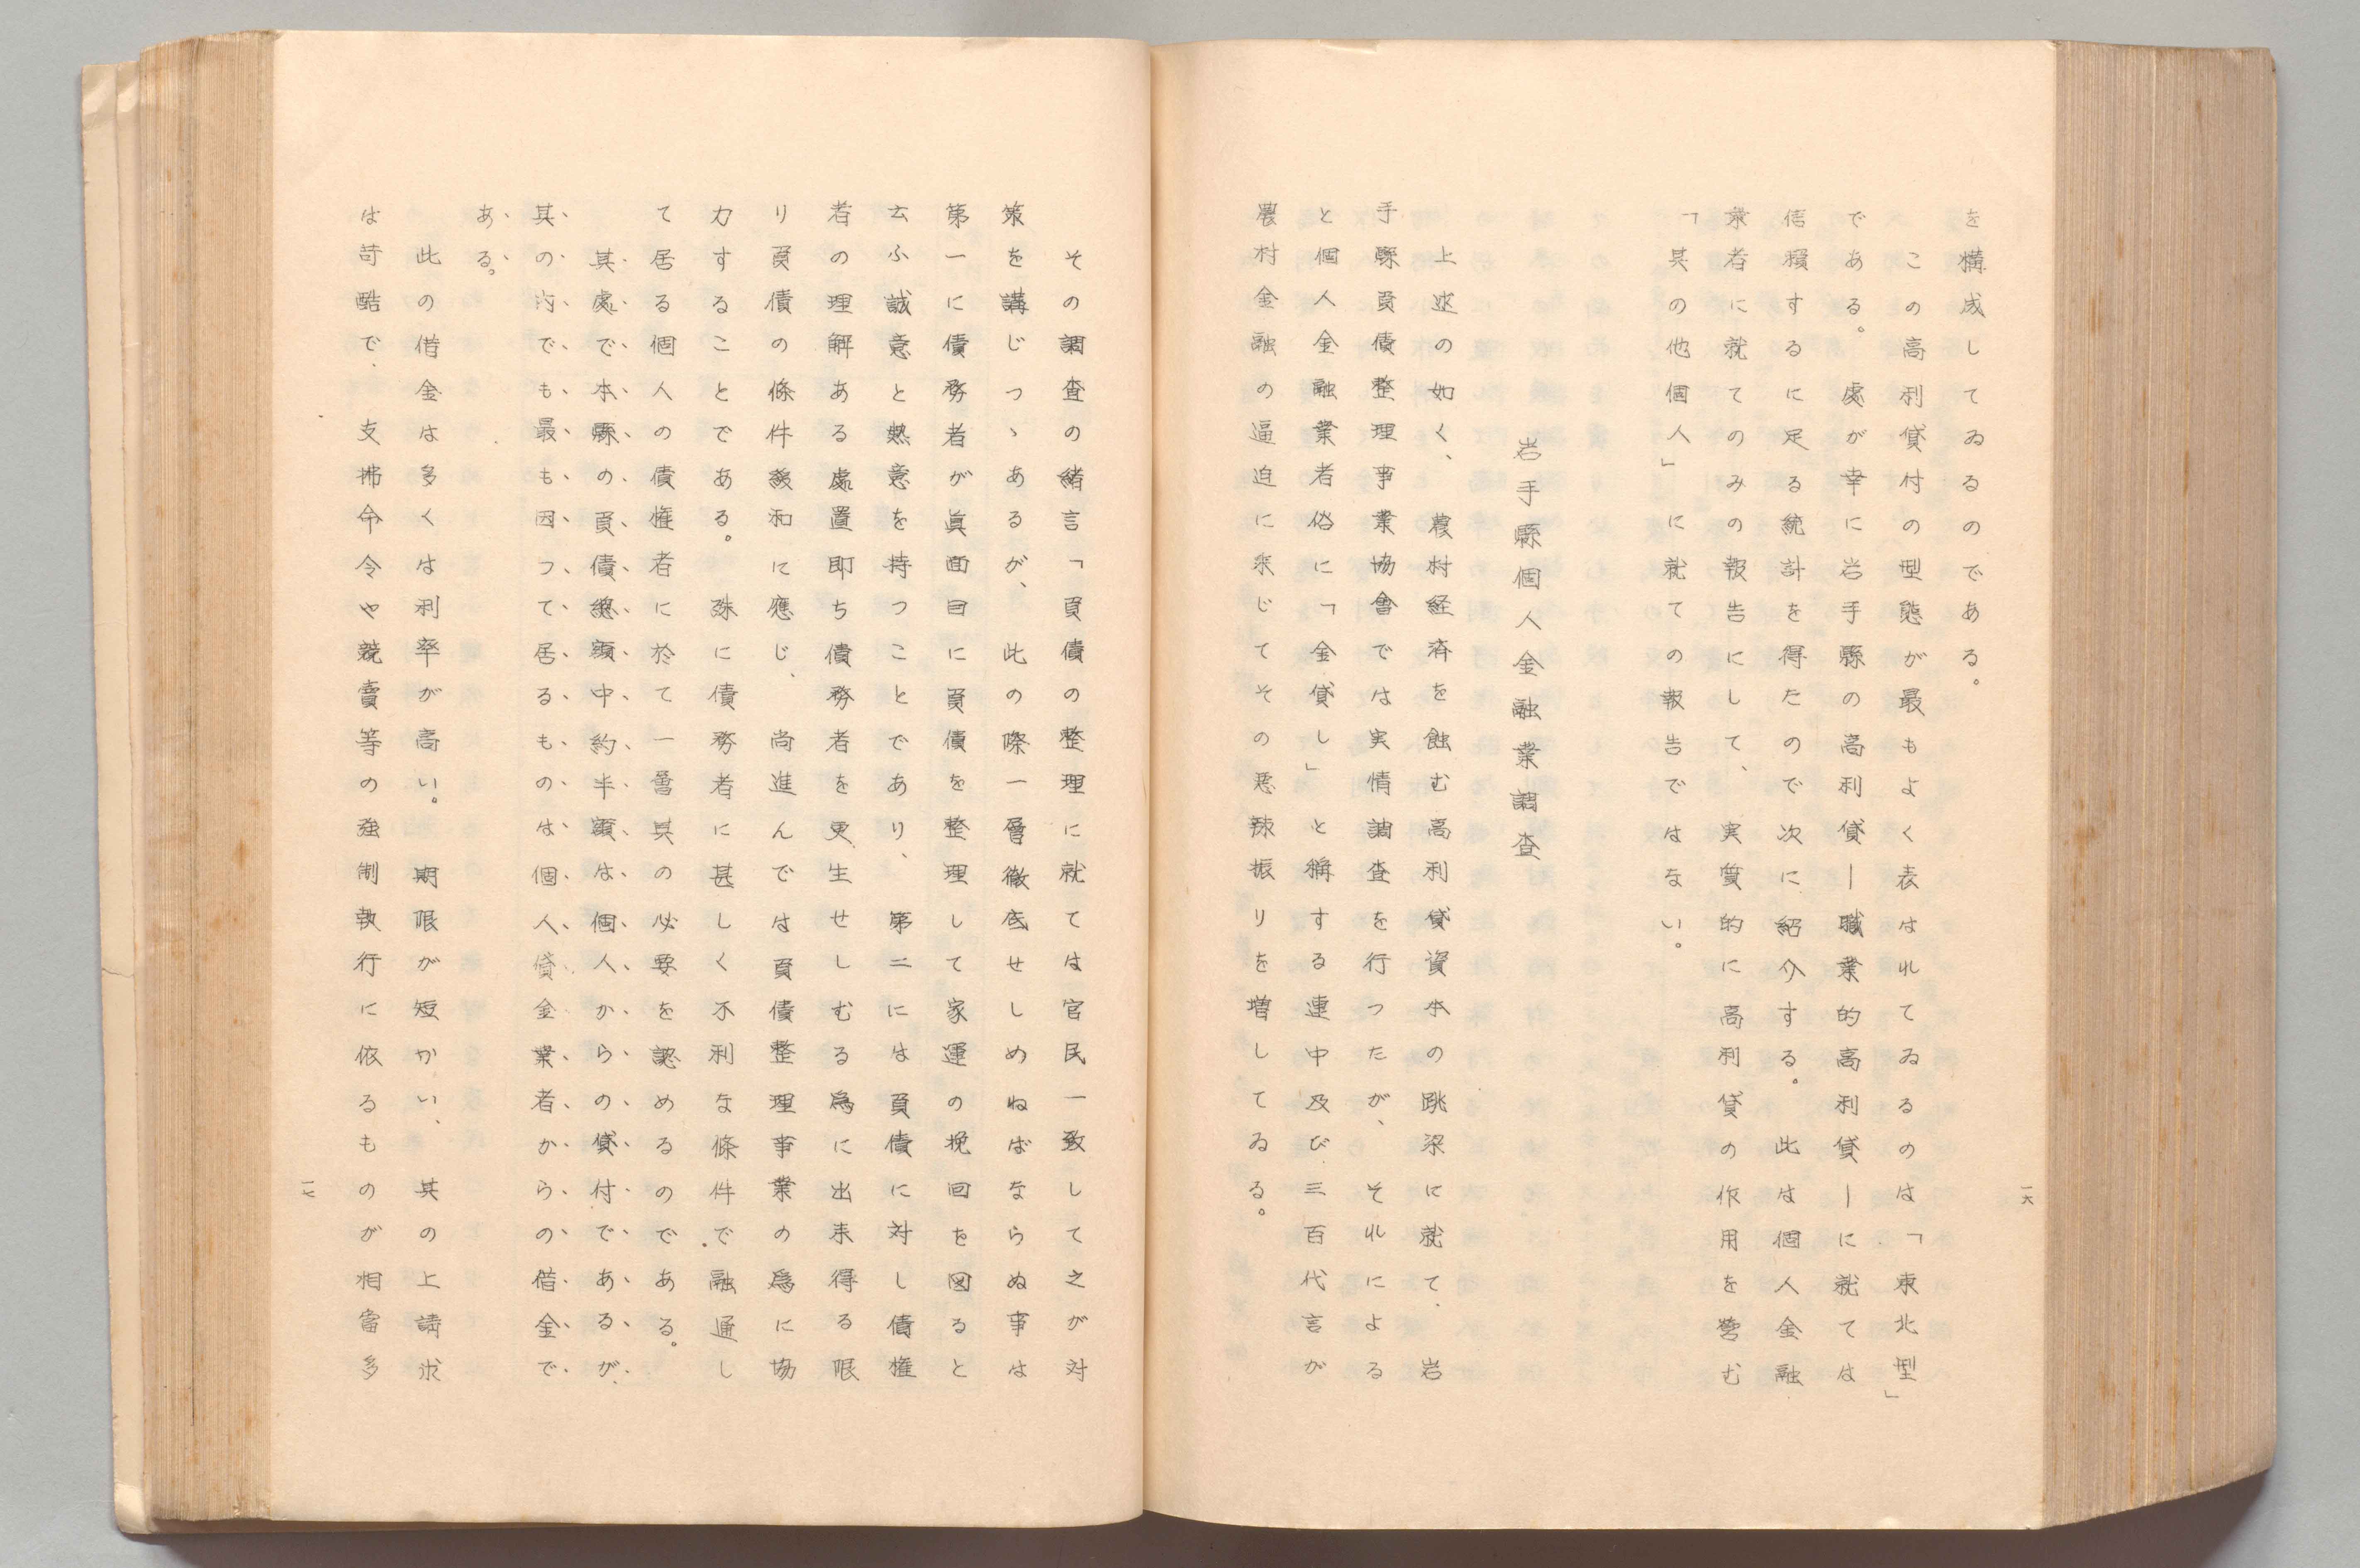 を構成してゐるのである。
この高利貸付の型態が最もよく表はれてゐるのは「東北型」
である。處が幸に岩手縣の高利貸ー職業的高利貸ーに就ては
信頼するに足る統計を得たので次に紹介する。此は個人金融
業者に就てのみの報告にして、実質的に高利貸の作用を営む
「其の他個人」に就ての報告ではない。
岩手縣個人金融業調査
上述の如く、農村経済を蝕む高利貸資本の跳梁に就て、岩
手縣負債整理事業協會では実情調査を行つたが、それによる
と個人金融業者俗に「金貸し」と稱する連中及び三百代言が
農村金融の逼迫に乘じてその悪辣振りを増してゐる。
一六
その調査の緒言「負債の整理に就ては官民一致して之が対
策を講じつゝあるが、此の際一層徹底せしめねばならぬ事は
第一に債務者が眞面目に負債を整理して家運の挽回を図ると
云ふ誠意と熱意を持つことであり、第二には負債に対し債権
者の理解ある處置即ち債務者を更生せしむる爲に出来得る限
り負債の條件緩和に應じ、尚進んでは負債整理事業の爲に協
力することである。殊に債務者に甚しく不利な條件で融通し
て居る個人の債権者に於て一層其の必要を認めるのである。
其處で本縣の負債總額中約半額は個人からの貸付であるが、
其の内でも最も因つて居るものは個人貸金業者からの借金で
ある。
此の借金は多くは利率が高い。期限が短かい、其の上請求
は苛酷で、支拂命令や競賣等の強制執行に依るものが相當多
一七